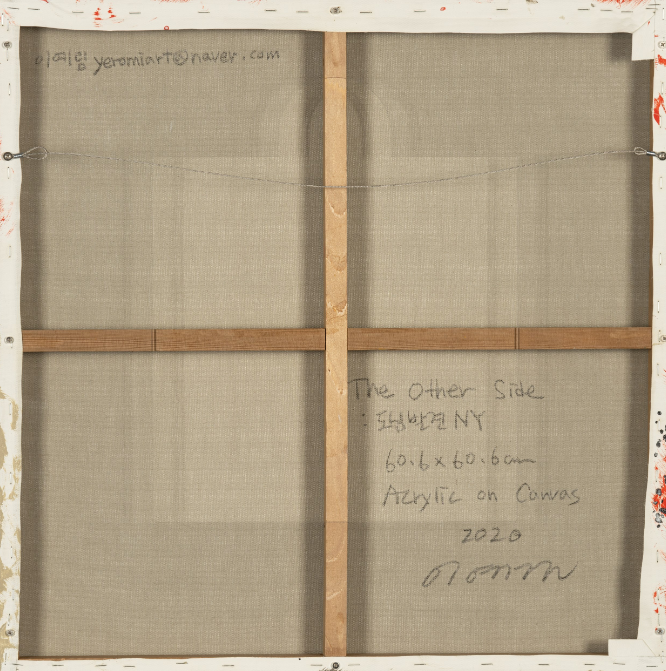 이여림 yeromiart@naver.com
The Other Side
: 도남반전 NY
60.6 x 60.6cm
Acrylic on Canvas
2020